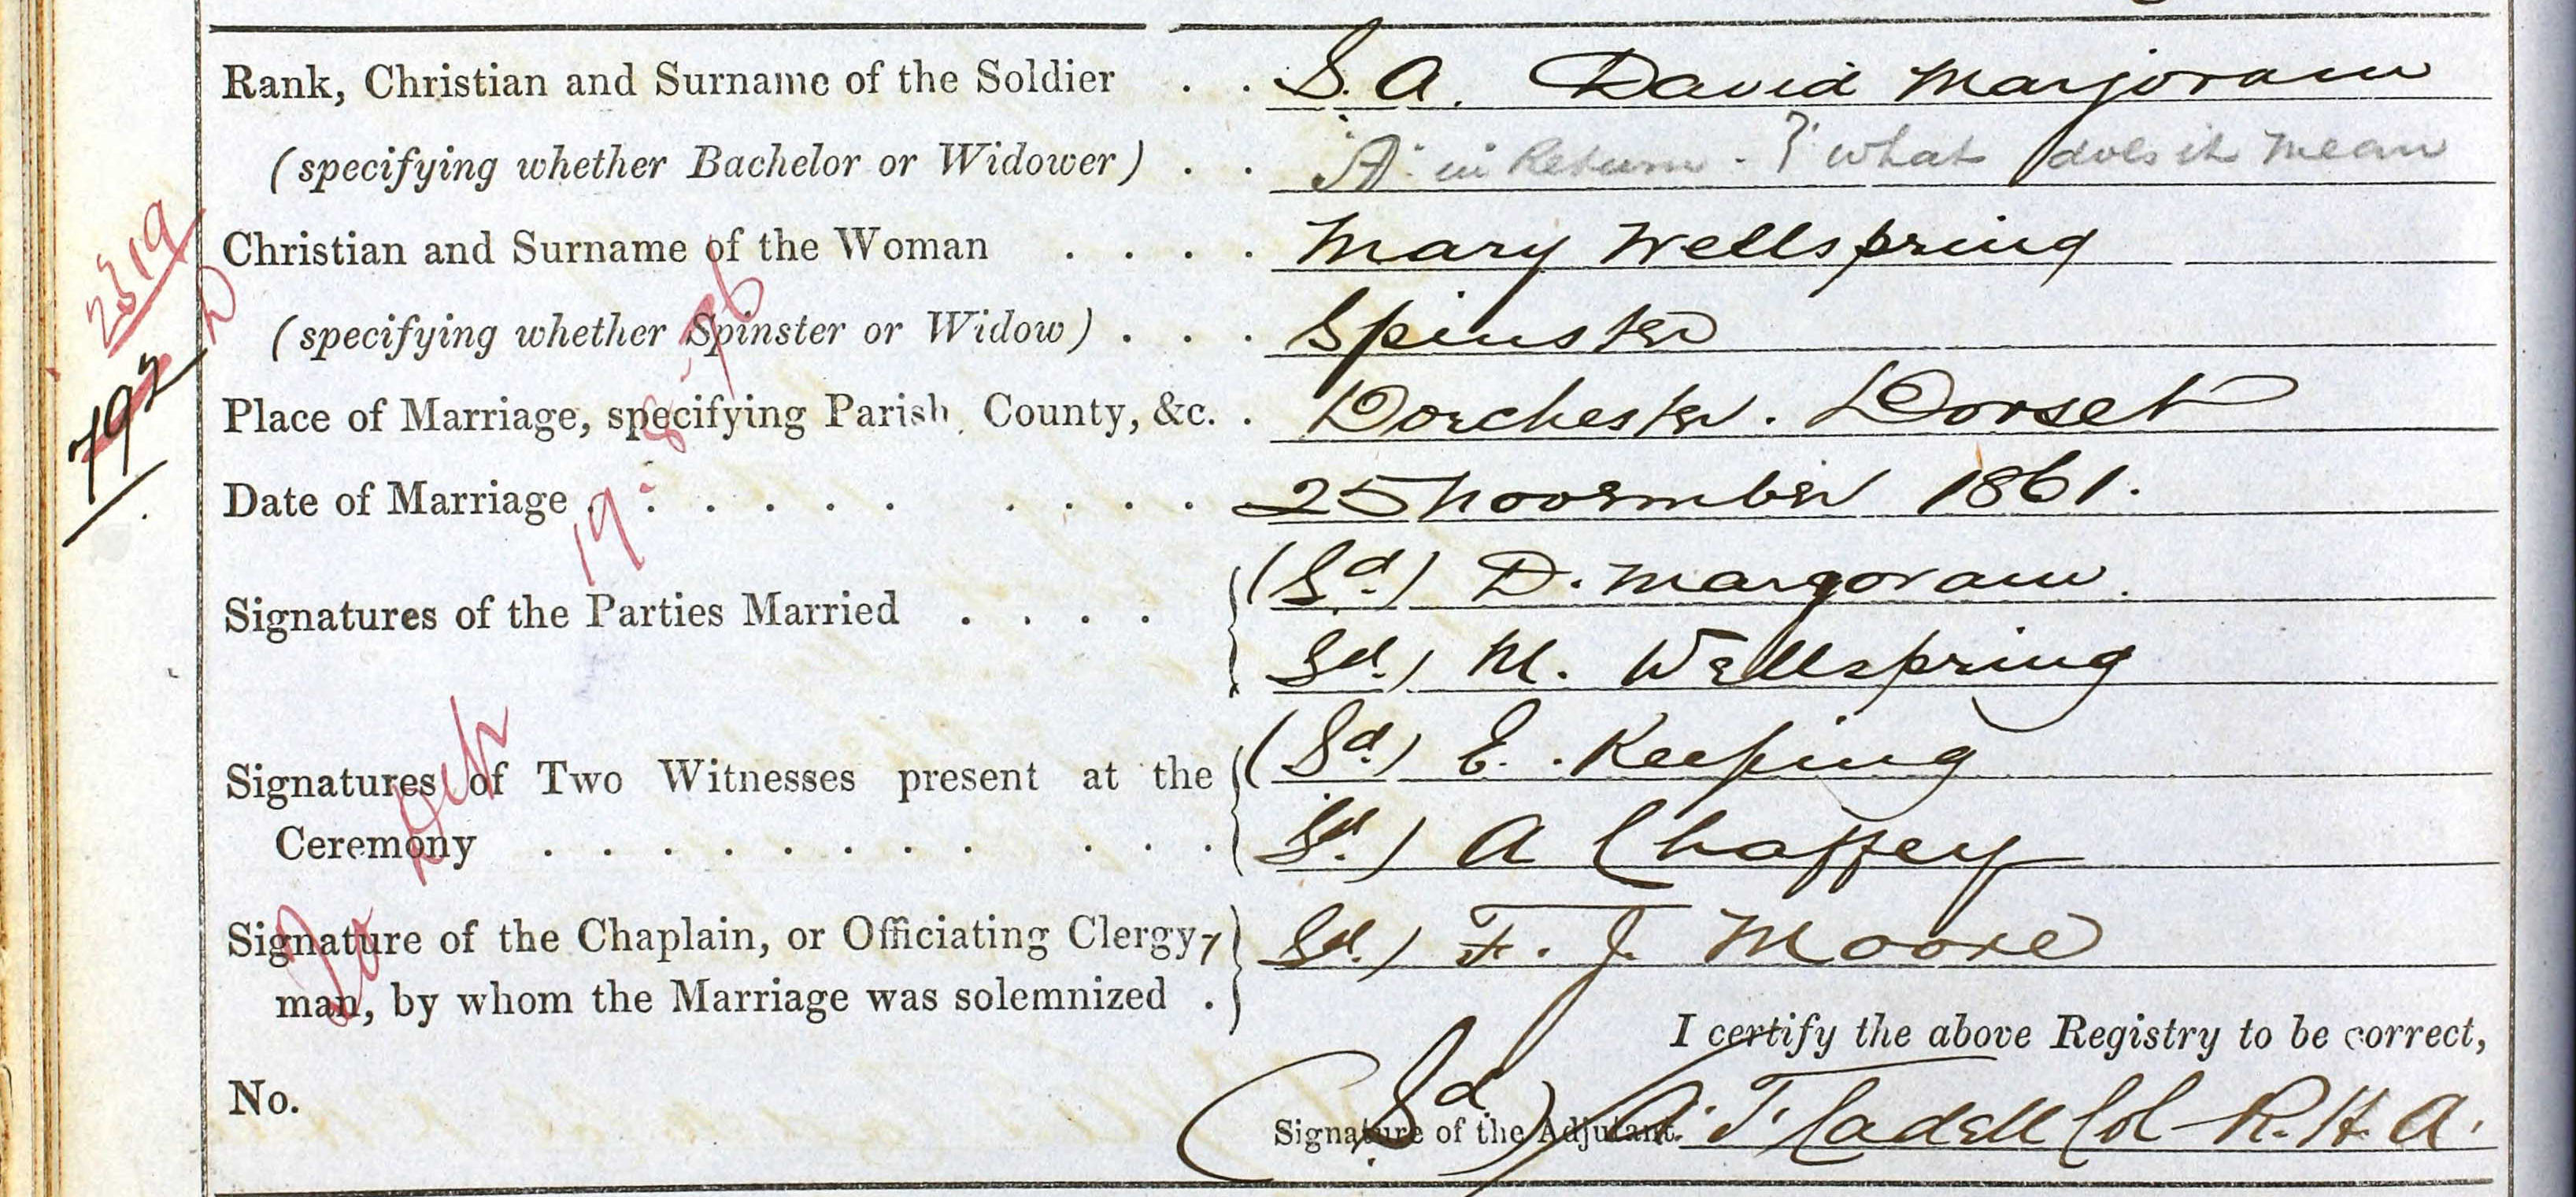 Rank, Christian and Surname of the Soldier . . S. A. David Marjoram
(specifying whether Bachelor or Widower) . . "A" in Return. ? what does it mean
Christian and Surname of the Woman . . . . Mary Wellspring
(specifying whether Spinster or Widow) . . . Spinster
Place of Marriage, specifying Parish, County, &c. . Dorchester. Dorset
Date of Marriage . . . . . . . . . . 25 November 1861.
Signatures of the Parties Married . . . . (Sd.) D. Margoram.
Sd.) M. Wellspring
Signatures of Two Witnesses present at the (Sd.) E. Keeping
Ceremony . . . . . . . . . . . Sd.) A Chaffey
Signature of the Chaplain, or Officiating Clergy- Sd.) F. J. Moore
man, by whom the Marriage was solemnized .
I certify the above Registry to be correct,
No.
Signature of the Adjutant. (Sd) T. Cadell Col R.H.A.
2319
792
19 -